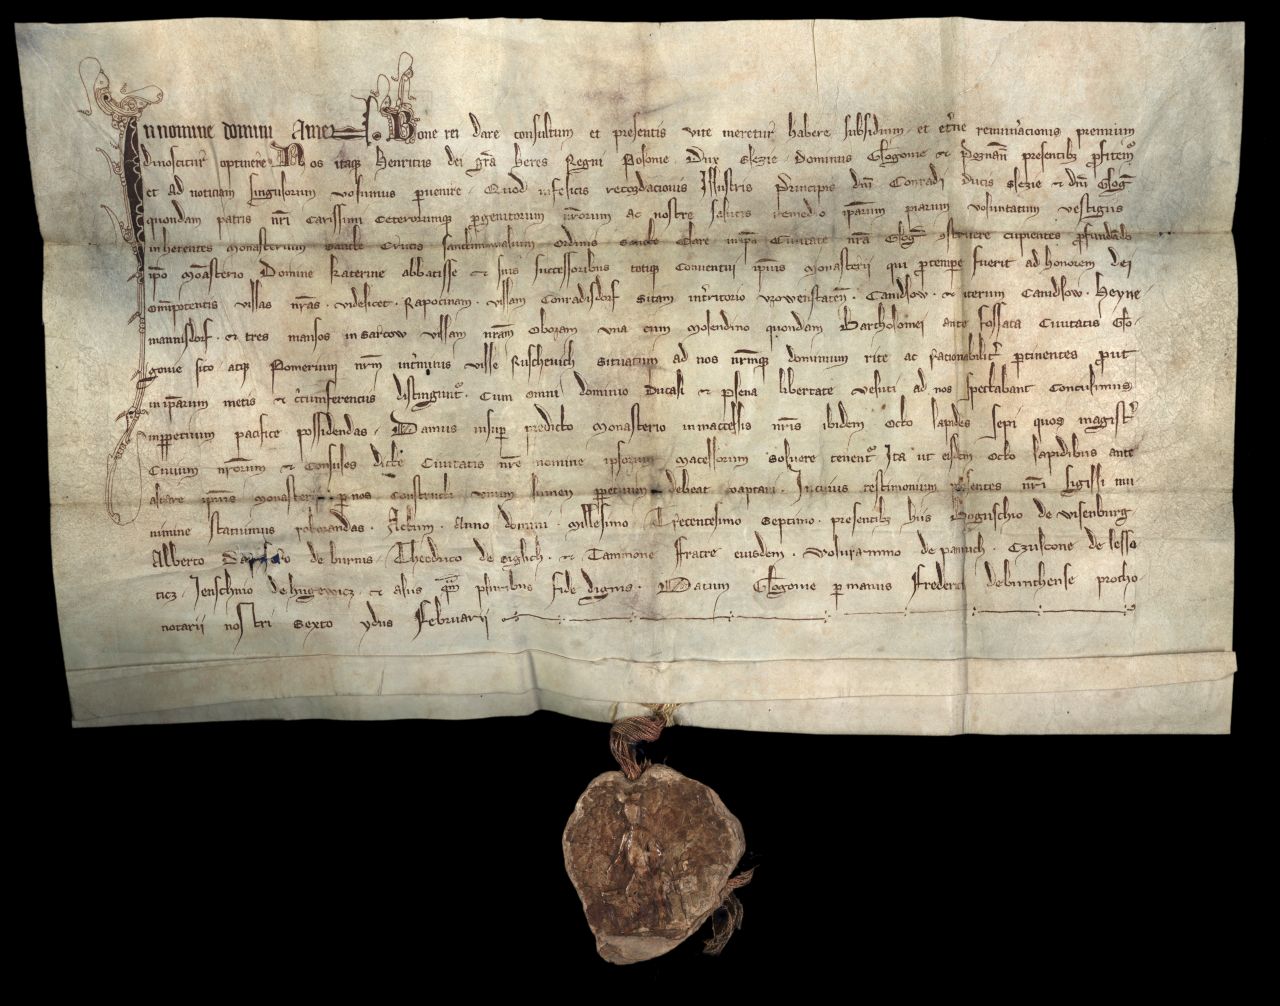 In nomine domini Amen. Bone rei dare consultum et presentis vite meretur habere subsidium et et̄ne remunacionis premium
dinoscitur optinere Nos itaq Henricus dei gr̄a heres Regni Polonie Dux Slezie Dominus Glogouie et Poznan̄ presentibz profitemᷣ
et ad noticiam singulorum volumus puenire Quod infelicis recordacionis Illustris Principis dn̄i Conradi ducis Slezie et dn̄i Gloḡ
quondam patris nr̄i carissimi Ceterorumq pgenitorum nr̄orum ac nostre salutis remedio ip̄arum piarum voluntatum vestigiis
inherentes monasterium sancte Crucis sanctimonialium ordinis sancte Clare in ip̄a Ciuitate nr̄a Gloḡ ɔstruere cupientes profundādo
ip̄o Monāsterio Domine katerine abbatisse et suis successoribus totiq Conuentui ip̄ius monasterii qui pro tempe fuerit ad honorem dei
om̄ipotentis villas nr̄as videlicet Rapocinam villam Conradisdorf sitam in tritorio vrowenstaten̄ Canidlow et iterum Canidlow Heyne
mannisdorf et tres mansos in Sarcow villam nr̄am Oboram una cum molendino quondam Bartholomei ante fossata Ciuitatis Glo
gouie sito atq Pomerium nr̄m int̄minis ville Ruschouich situatum ad nos nr̄mq dominium rite ac racionabilit ptinentes prout
in ip̄arum metis et ccumferenciis distingunt Cum omni dominio Ducali et plena libertate veluti ad nos spectabant Concessimus
inppetuum pacifice possidendas Damus insup predicto monasterio in maccellis nr̄is ibidem Octo lapides sepi quos magistr
Ciuium nr̄orum et Consules dicte Ciuitatis nr̄e nomine ipsorum macellorum soluere tenent Ita ut eisdem Octo lapidibus ante
altare ip̄ius monasterii p nos constructi unum lumen ppetuum debeat coaptari In cuius testimonium psentes nr̄i sigilli mu
nimine statuimus roborandas Actum Anno domini millesimo Trecentesimo Septimo presentibz hiis Boguschio de visenburg
Alberto de burnis Theodrico de et Tammone fratre eiusdem Wolframmo de panuich Czulcone de lesso
ticz Jenschino de hugewicz et aliis qm̄ pluribus fide dignis Datum Glogouie p manus Frederici de bunthense protho
notarii nostri Sexto ydus Februarii